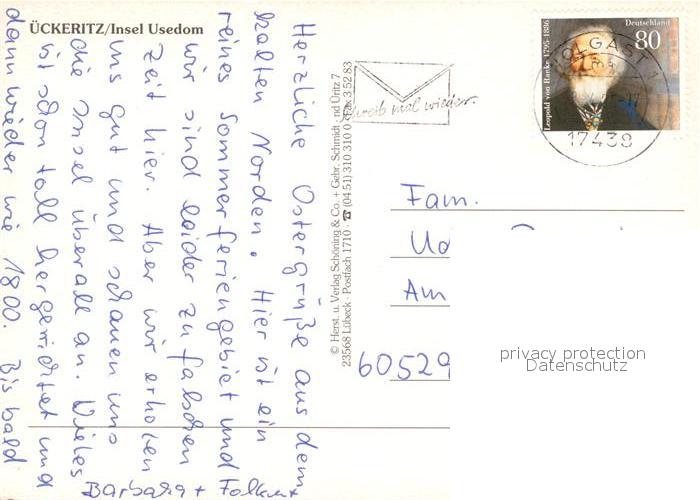 ÜCKERITZ/Insel Usedom
Herzliche Ostergrüße aus dem
kalten Norden. Hier ist ein
reines Sommerferiengebiet und
wir sind leider zu falschen
Zeit hier. Aber wir erholen
uns gut und schauen uns
die Insel überall an. Vieles
ist schon toll hergerichtet und
dann wieder wie 1800. Bis bald
Barbara + Folkmut
© Herst. u. Verlag Schöning & Co. + Gebr. Schmidt · nd Üritz 7
23568 Lübeck · Postfach 1710 · ☎ (04 51) 310 310 0 Fax 3 52 83
Schreib mal wieder.
Leopold von Ranke 1795-1886
Deutschland
80
WOLGAST 1
17438
Fam.
Ud
Am
60529
privacy protection
Datenschutz